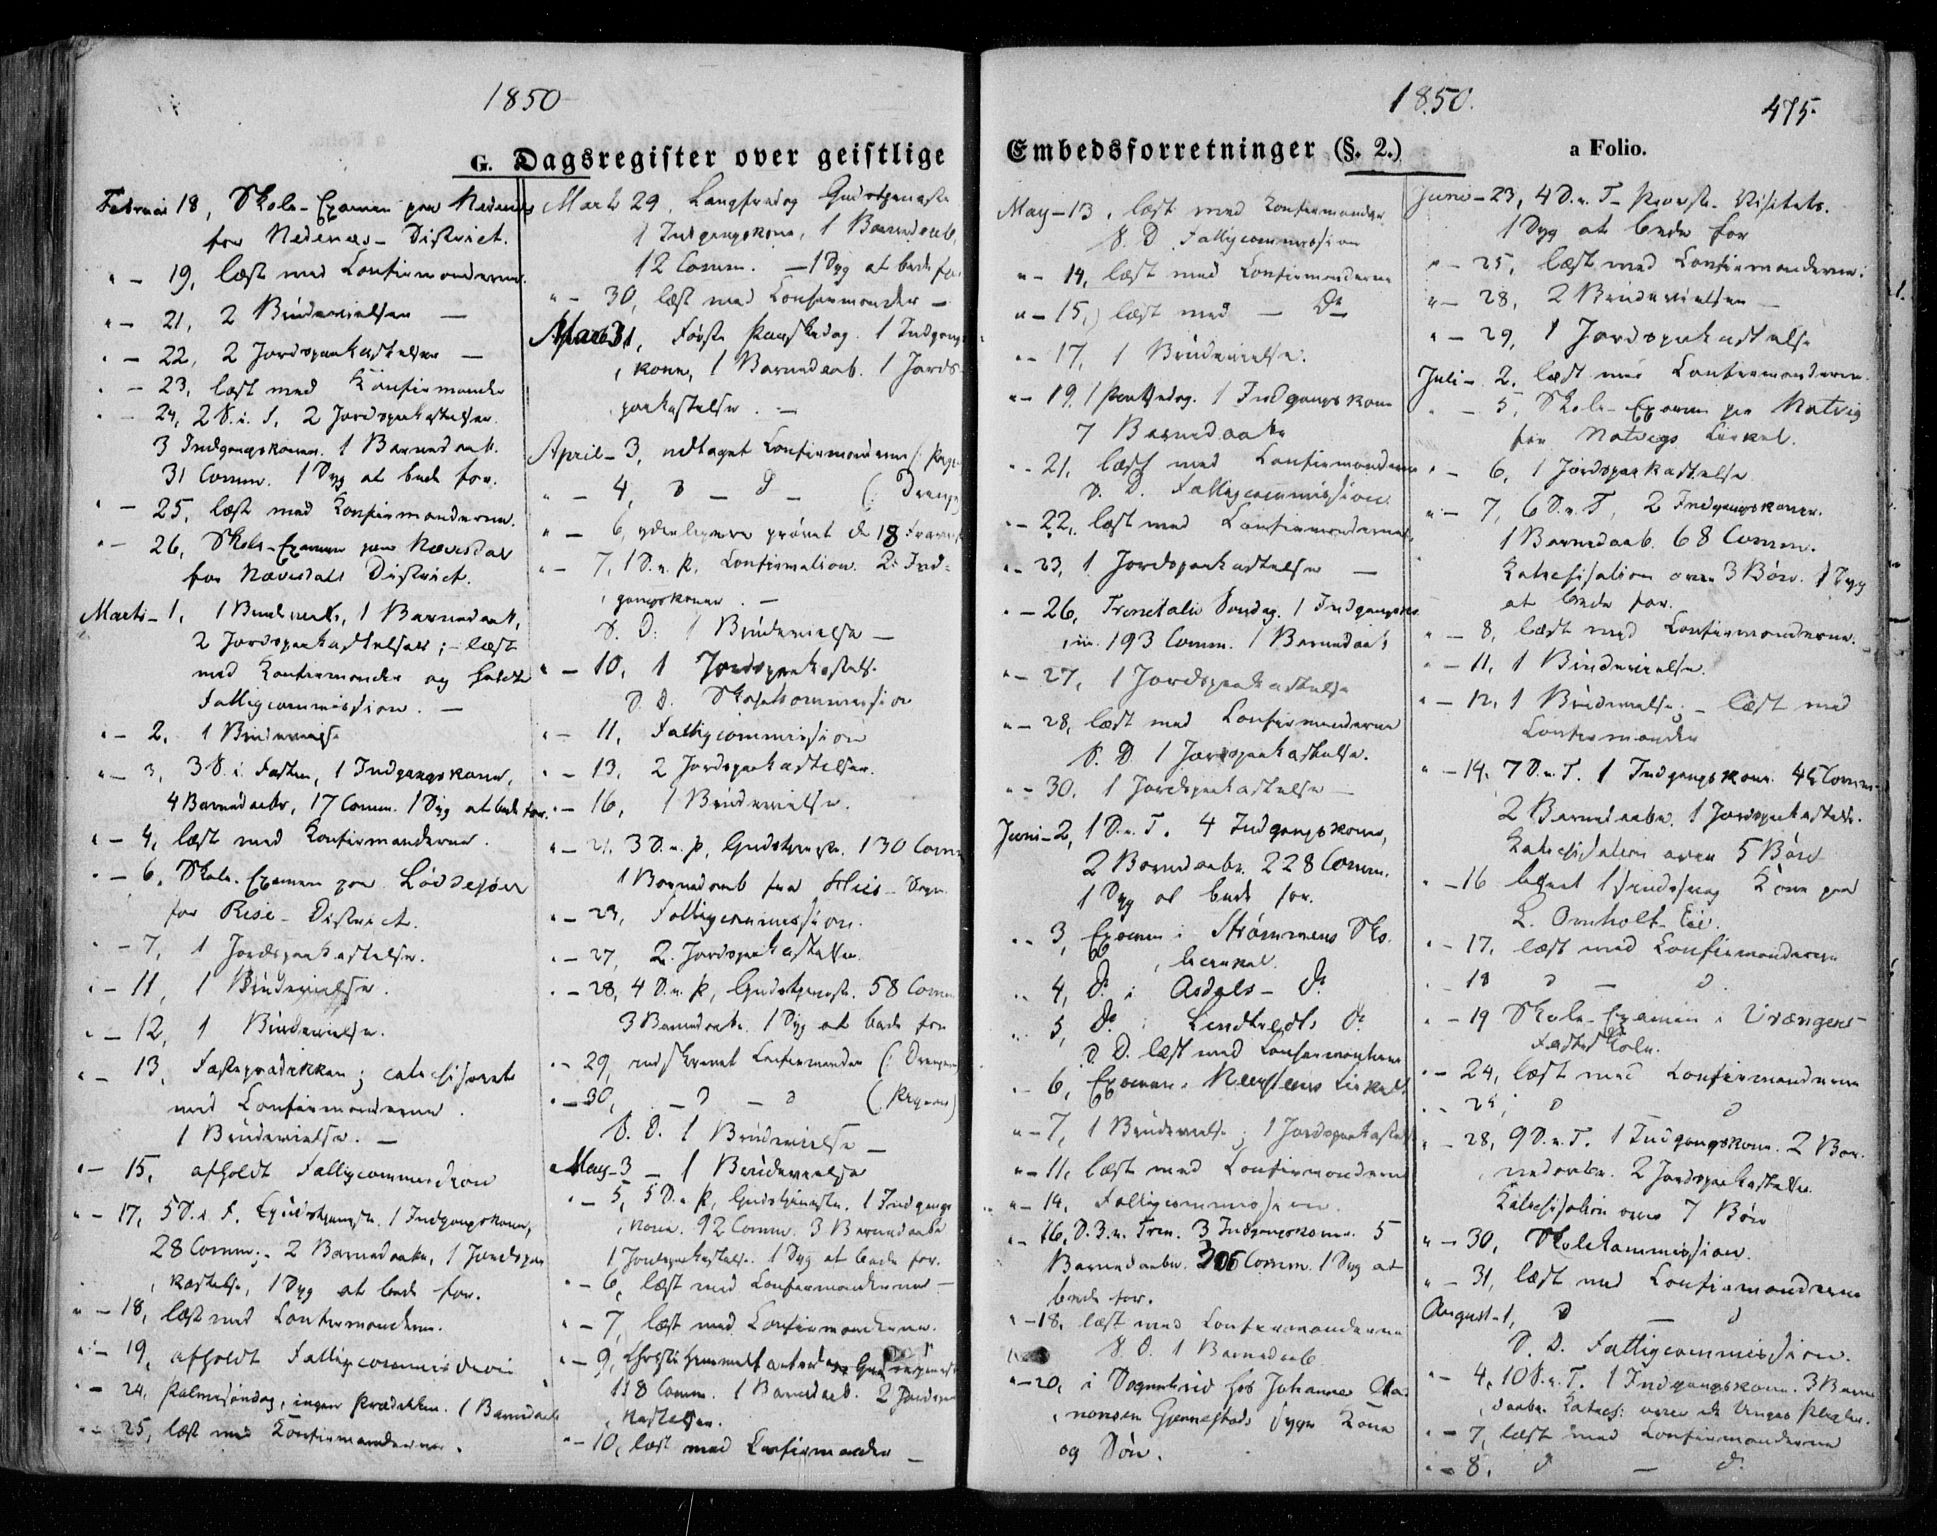 1850
G. Dagsregister over geistlige
Februar 18, Skole-Examen paa Nedenes
for Nedenes-District.
" - 19, læst med Confirmanderne.
" - 21, 2 Brudevielser -
" - 22, 2 Jordspaakastelser -
" - 23, læst med Konfirmander
" - 24, 2 S. i. F. 2 Jordspaakastelser
3 Indgangskoner. 1 Barnedaab.
31 Comm. 1 Syg at bede for.
" - 25, læst med Konfirmanderne.
" - 26, Skole-Examen paa Nævesdal
for Nævesdals District.
Marts - 1, 1 Brudevielse, 1 Barnedaab,
2 Jordspaakastelser; - læst
med Konfirmander og holdt
Fattigcommission. -
" - 2, 1 Brudevielse
" - 3, 3 S. i. Fasten, 1 Indgangskone,
4 Barnedaabe, 17 Comm. 1 Syg at bede for.
" - 4, læst med Konfirmanderne.
" - 6, Skole-Examen paa Løddesøen
for Rise-District.
" - 7, 1 Jordspaakastelse.
" - 11, 1 Brudevielse.
" - 12, 1 Brudevielse.
" - 13, Fasteprædikken; catechiserede
med Confirmanderne.
1 Brudevielse. -
" - 15, afholdt Fattigcommission
" - 17, 5 S. i. F. Gudstjeneste. 1 Indgangskone,
28 Comm; - 2 Barnedaabe, 1 Jordspaa
kastelse, 1 Syg at bede for.
" - 18, læst med Confirmanderne.
" - 19, afholdt Fattigcommission
" - 24, Palmesøndag, ingen Prædikken. 1 Barnedaab
" - 25, læst med Konfirmanderne.
Marts 29, Langfredag Gudstjeneste
1 Indgangskone, 1 Barnedaab,
12 Comm. - 1 Syg at bede for
" - 30, læst med Confirmander -
Marts 31, Første Paaskedag. 1 Indgangs
kone, 1 Barnedaab. 1 Jords-
paakastelse. -
April - 3, udtaget Confirmanderne (: Piger
" - 4, D - D - (: Drenge
" - 6, yderligere prøvet de 18
" - 7, 1 S. e. P. Confirmation. 2 Ind-
gangskoner. -
S. D. 1 Brudevielse -
" - 10, 1 Jordspaakastelse
S. D. Skolecommission
" - 11, Fattigcommission
" - 13, 2 Jordspaakastelser.
" - 16, 1 Brudevielse.
" - 21, 3 S. e. P. Gudstjeneste. 130 Comm
1 Barnedaab fra Hiis-Sogn.
" - 23, Fattigcommission.
" - 27, 2 Jordspaakastelser.
" - 28, 4 S. e. P. Gudstjeneste. 58 Comm
3 Barnedaabe. 1 Syg at bede for
" - 29, indskrevet Confirmander (: Drenge
" - 30, - D - D (: Pigerne)
S. D. 1 Brudevielse -
May - 3 - 1 Brudevielse
" - 5, 5 S. e. P. Gudstjeneste. 1 Indgangs
kone. 92 Comm. 3 Barnedaabe
1 Jordspaakastelse. 1 Syg at bede for.
" - 6, læst med Confirmanderne -
" - 7, læst med Confirmanderne.
" - 9, Christi Himmelfartsdag
118 Comm. 1 Barnedaab. 2 Jordspaa
kastelser.
" - 10, læst med Confirmander -
1850.
475.
Embedsforretninger (§. 2.)
a Folio.
May - 13, læst med Confirmander
S. D. Fattigcommission
" - 14, læst med Confirmanderne
" - 15, læst med - Do
" - 17, 1 Brudevielse.
" - 19, 1 Pentsedag. 1 Indgangskone
7 Barnedaabe
" - 21, læst med Confirmanderne
S. D. Fattigcommission.
" - 22, læst med Confirmanderne.
" - 23, 1 Jordspaakastelse -
" - 26, Trenetatis Søndag. 1 Indgangskone
193 Comm. 1 Barnedaab
" - 27, 1 Jordspaakastelse
" - 28, læst med Confirmanderne
S. D. 1 Jordspaakastelse.
" - 30, 1 Jordspaakastelse -
Juni - 2, 1 S. e. T. 4 Indgangskoner,
2 Barnedaabe. 228 Comm.
1 Syg at bede for.
" - 3, Examen i Strømmens Sko-
lecirkel.
" - 4, Do i Asdals - Do
" - 5, Do i Do
S. D. læst med Confirmanderne
" - 6, Examen i Cirkel
" - 7, 1 Brudevielse; 1 Jordspaakastelse
" - 11, læst med Confirmanderne
" - 14, Fattigcommission.
" - 16, S. 3. e. Tren. 3 Indgangskoner. 5
Barnedaabe. 306 Comm. 1 Syg at
bede for.
" - 18, læst med Confirmanderne
S. D. 1 Barnedaab
" - 20, i Sognebud hos Johannes Aa-
nonsen Gjennestads syge Kone
og Søn.
Juni - 23, 4 S. e. T. Provste-Visitats.
1 Syg at bede for
" - 25, læst med Confirmanderne.
" - 28, 2 Brudevielser -
" - 29, 1 Jordspaakastelse
Juli - 2, læst med Confirmanderne.
" - 5, Skole-Examen paa Natvig
for Natvigs Cirkel.
" - 6, 1 Jordspaakastelse
" - 7, 6 S. e. T. 2 Indgangskoner.
1 Barnedaab. 68 Comm.
Katechisation over 3 Børn. 1 Syg
at bede for.
" - 8, læst med Confirmanderne.
" - 11, 1 Brudevielse.
" - 12, 1 Brudevielse. - læst med
Confirmander
" - 14, 7 S. e. T. 1 Indgangskone. 42 Comm.
2 Barnedaabe. 1 Jordspaakastelse.
Katechisation over 5 Børn
" - 16 Kone paa
L. Omholt-Eie.
" - 17, læst med Confirmanderne
" - 18 D - D.
" - 19 Skole-Examen i Vrængens-
Fastskole.
" - 24, læst med Confirmanderne
" - 25, D D
" - 28, 9 S. e. T. 1 Indgangskone. 2 Bar-
nedaabe. 2 Jordspaakastelser.
Katechisation over 7 Børn
" - 30, Skolekommission.
" - 31, læst med Confirmanderne
August - 1, D - D
S. D. Fattigcommission.
" - 4, 10 S. e. T. 1 Indgangskone. 3 Barne
daabe. Katech: over de Unges Pligter.
" - 7, læst med Confirmanderne
" - 8, D - D.